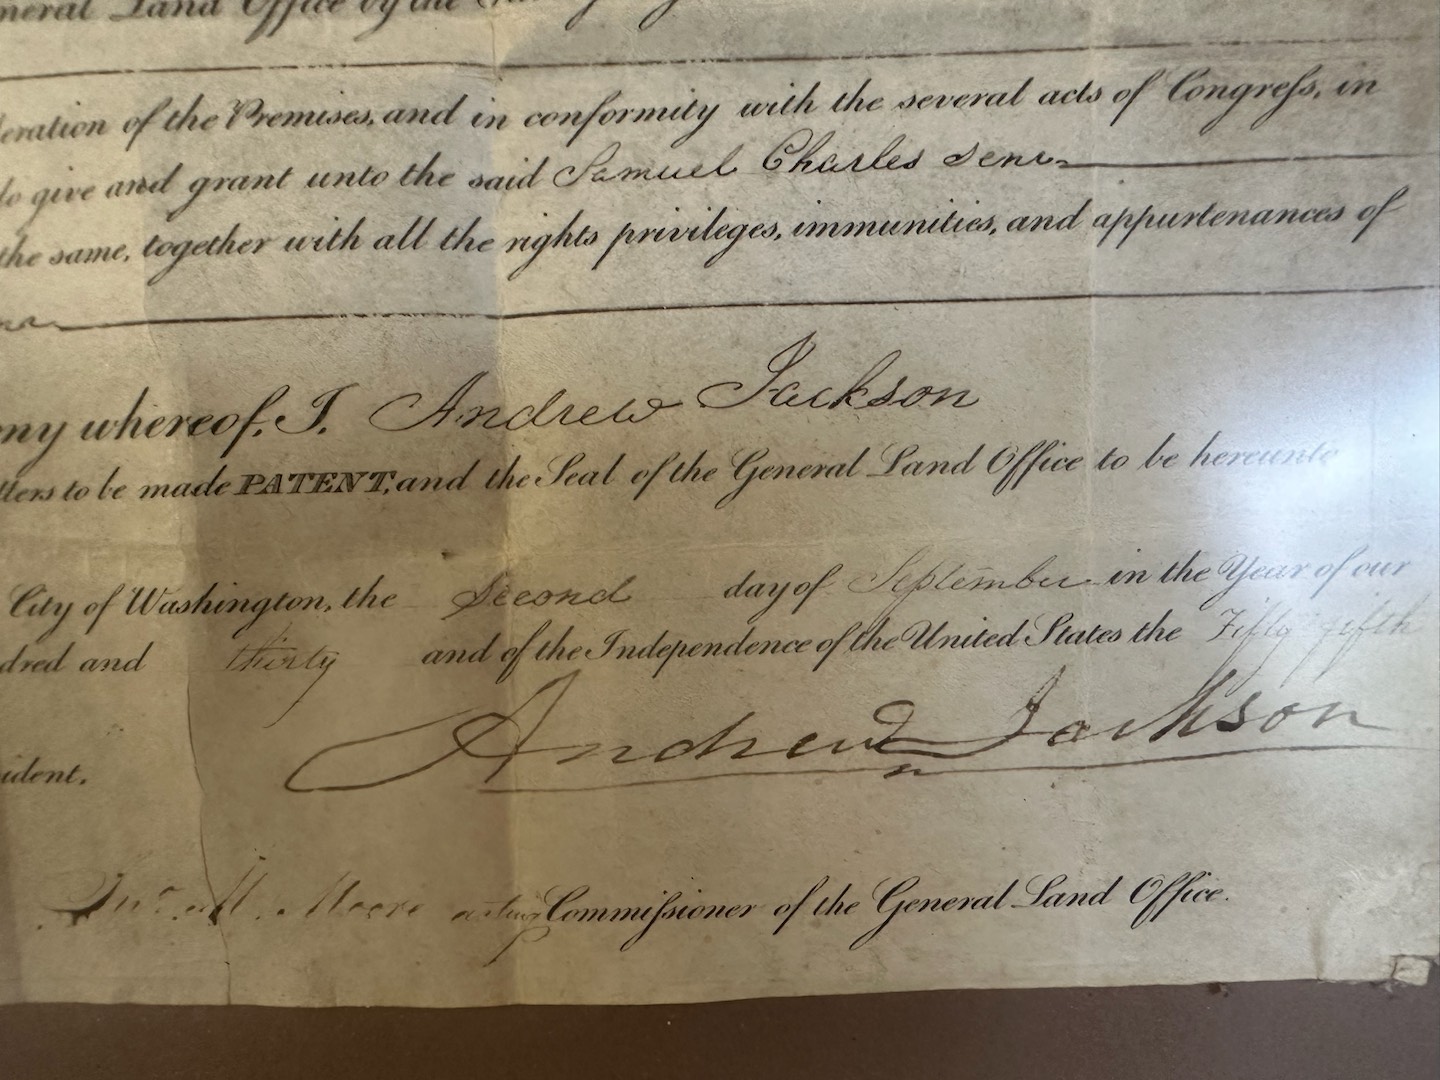 neral Land Office by the
eration of the Premises, and in conformity with the several acts of Congreſs, in
to give and grant unto the said Samuel Charles Senr
the same, together with all the rights privileges, immunities, and appurtenances of
ny whereof, I, Andrew Jackson
tters to be made PATENT, and the Seal of the General Land Office to be hereunto
City of Washington, the Second day of September in the Year of our
dred and thirty and of the Independence of the United States the Fifty fifth
Andrew Jackson
ident.
Jno. M. Moore acting Commiſsioner of the General Land Office.